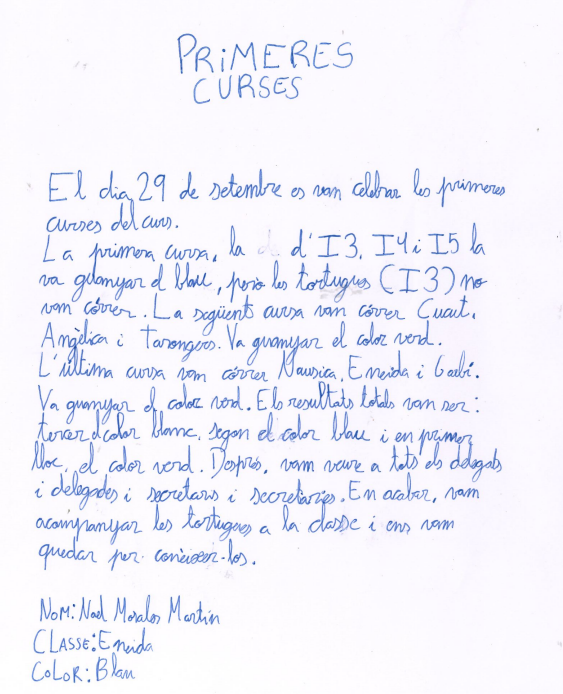 PRiMERES
CURSES
El dia 29 de setembre es van celebrar les primeres
curses del curs.
La primera cursa, la d' I3, I4 i I5 la
va guanyar el blau, però les tortugues (I3) no
van córrer. La següent cursa van córrer Cuart,
Angèlica i Tarongers. Va guanyar el color verd.
L'última cursa vam córrer Nausica, Eneida i Garbí.
Va guanyar el color verd. Els resultats totals vam ser:
tercer el color blanc, segon el color blau i en primer
lloc, el color verd. Després, vam veure a tots els delegats
i delegades i secretaris i secretaries. En acabar, vam
acompanyar les tortugues a la classe i ens vam
quedar per conèixer-los.
NOM: Noel Morales Martín
CLASSE: Eneida
COLOR: Blau